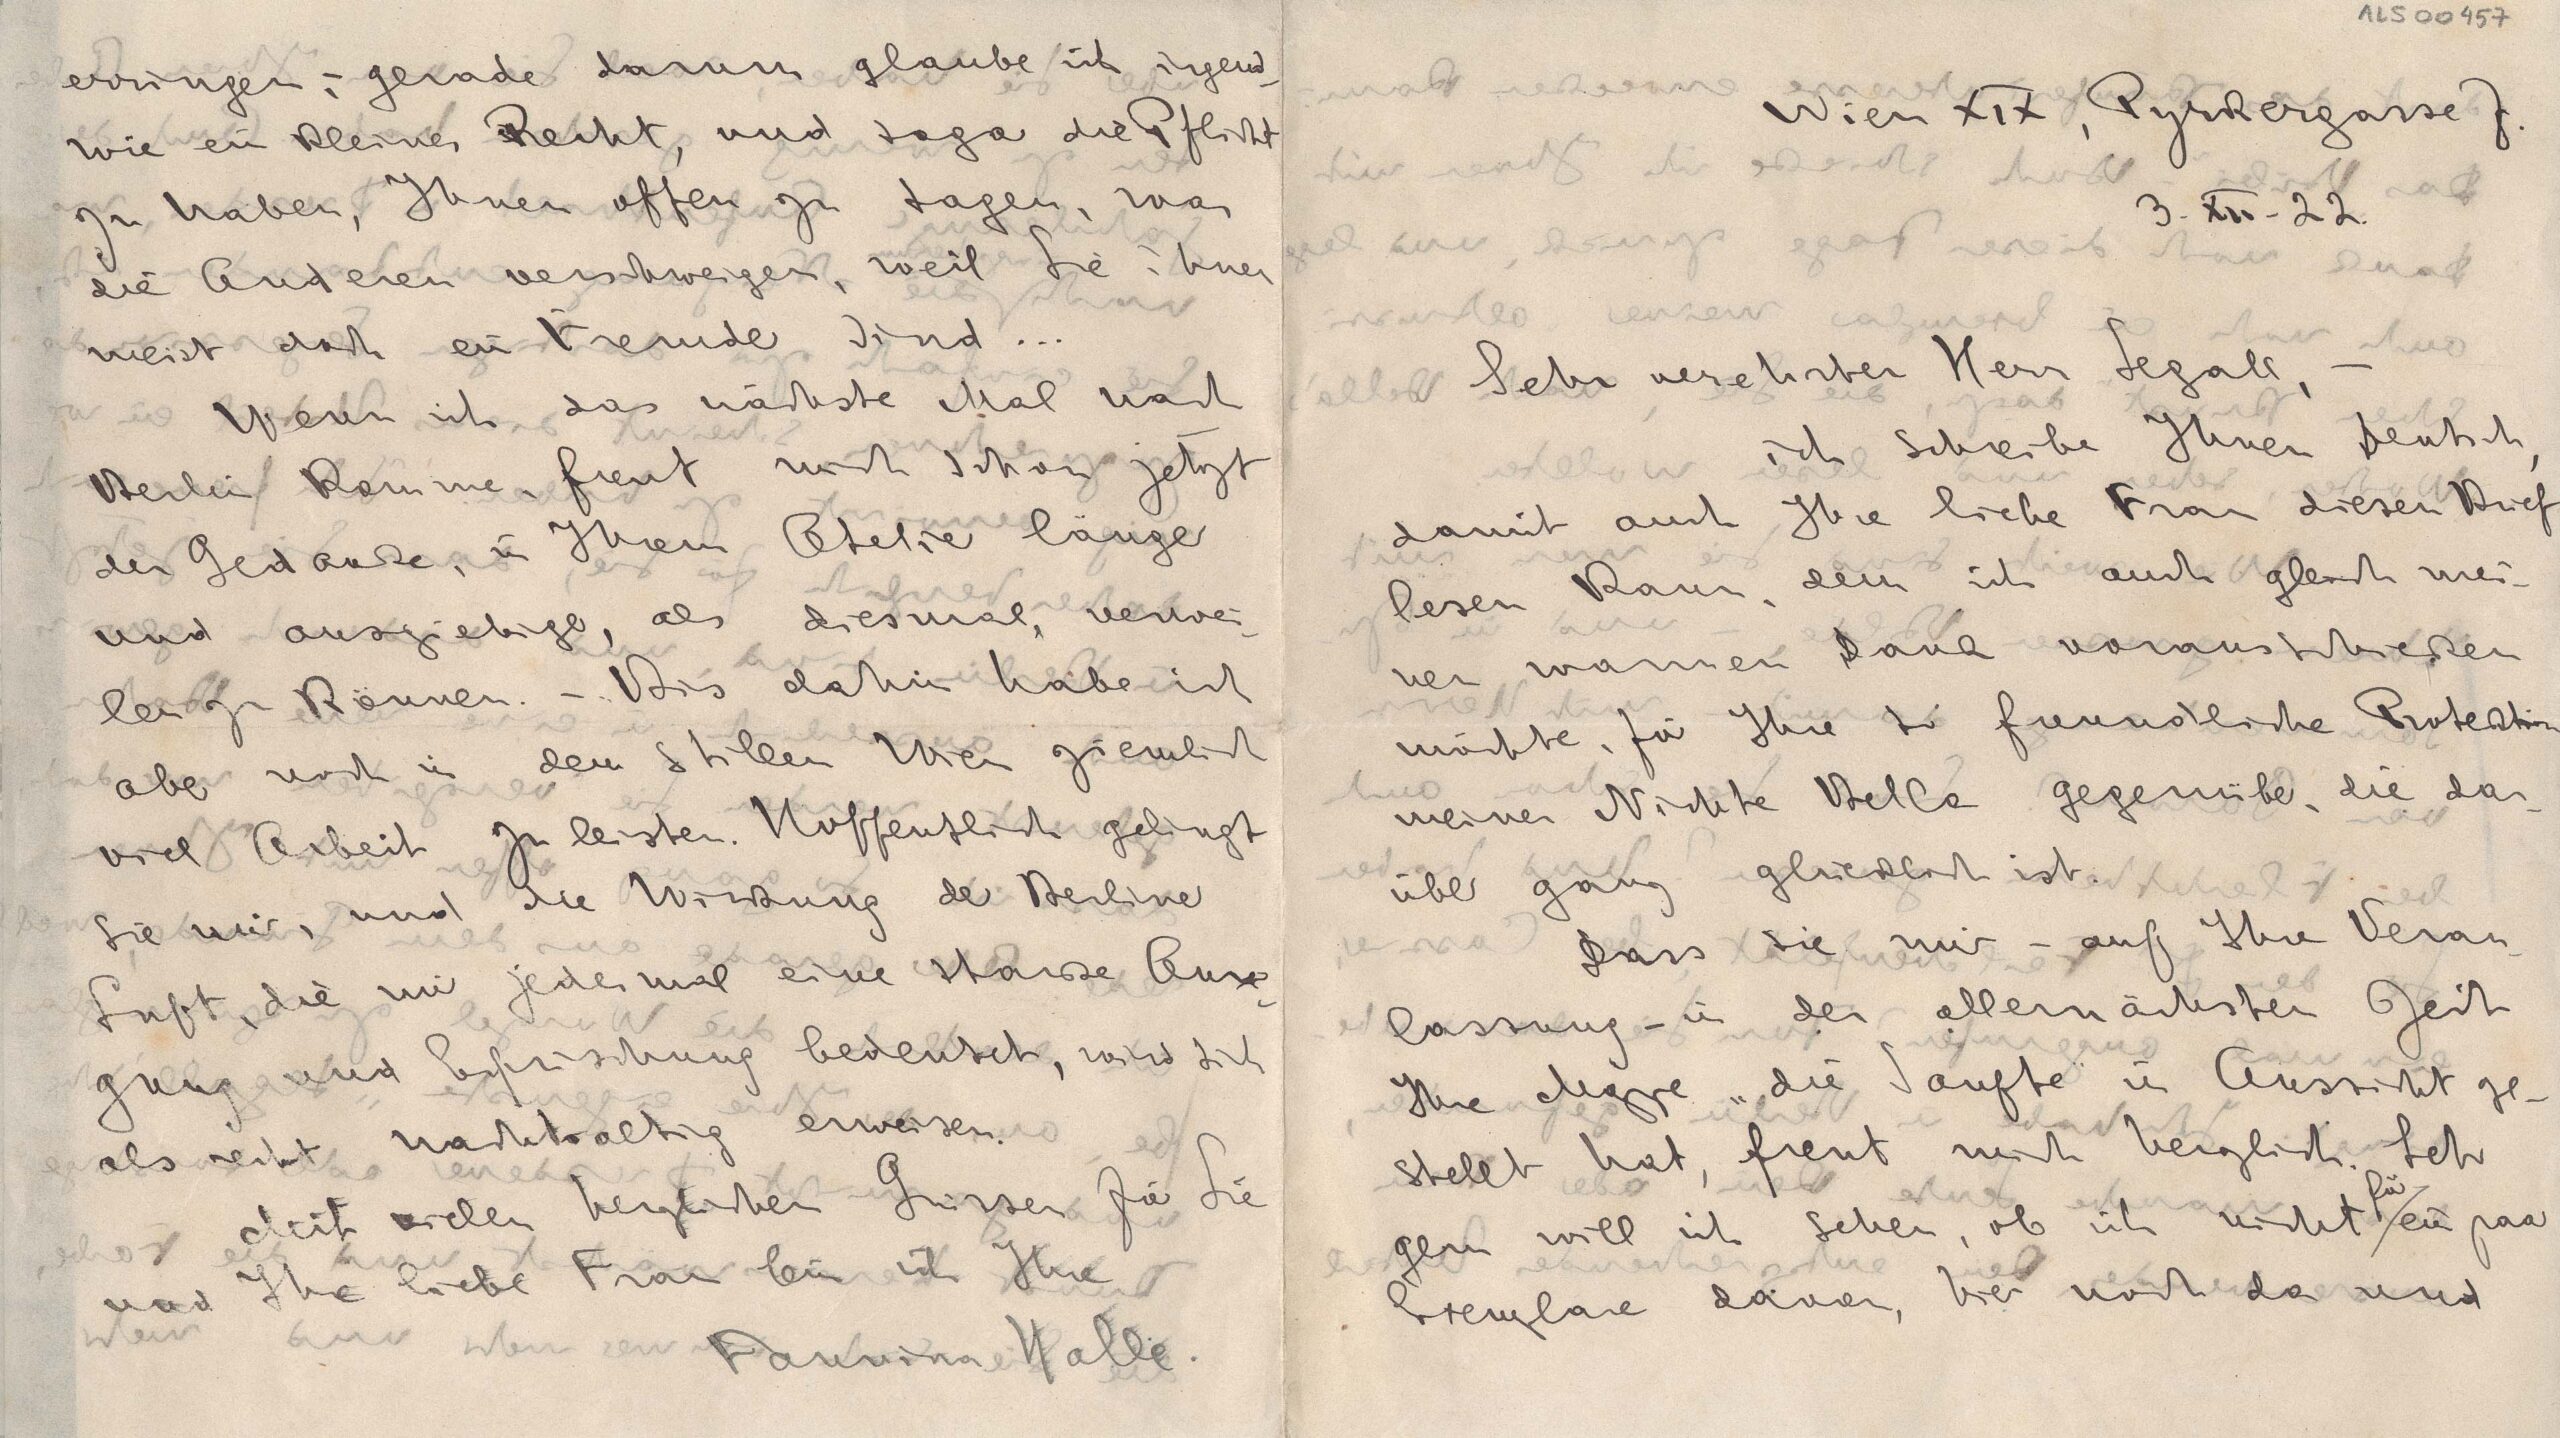 ALS 00457
Wien XIX, Pyrkergasse 7.
3. XII. 22.
Sehr verehrter Herr Segall, –
ich schreibe Ihnen Deutsch,
damit auch Ihre liebe Frau diesen Brief
lesen kann, dem ich auch gleich mei-
nen warmen Dank vorausschicken
möchte, für Ihre so freundliche Protektion
meiner Nichte Bella gegenüber, die dar-
über ganz glücklich ist.
Dass sie mir – auf Ihre Veran-
lassung – in der allernächsten Zeit
Ihre Mappe „die Sanfte" in Aussicht ge-
stellt hat, freut mich herzlich. Sehr
gern will ich sehen, ob ich nicht für ein paar
Exemplare davon, hier noch da und
erringen, – gerade darum glaube ich irgend-
wie ein kleines Recht, und sogar die Pflicht
zu haben, Ihnen offen zu sagen, was
die Anderen verschweigen, weil Sie ihnen
meist doch ein Fremder sind ...
Wenn ich das nächste Mal nach
Berlin komme, freut mich schon jetzt
der Gedanke, in Ihrem Atelier länger
und ausgiebiger, als diesmal, verwei-
len zu können. – Bis dahin habe ich
aber noch in dem stillen Wien ziemlich
viel Arbeit zu leisten. Hoffentlich gelingt
sie mir, und die Wirkung der Berliner
Luft, die mir jedesmal eine starke Anre-
gung und Erfrischung bedeutet, wird sich
als recht nachhaltig erweisen.
Mit vielen herzlichen Grüssen für Sie
und Ihre liebe Frau bin ich Ihre
Fannina Halle.